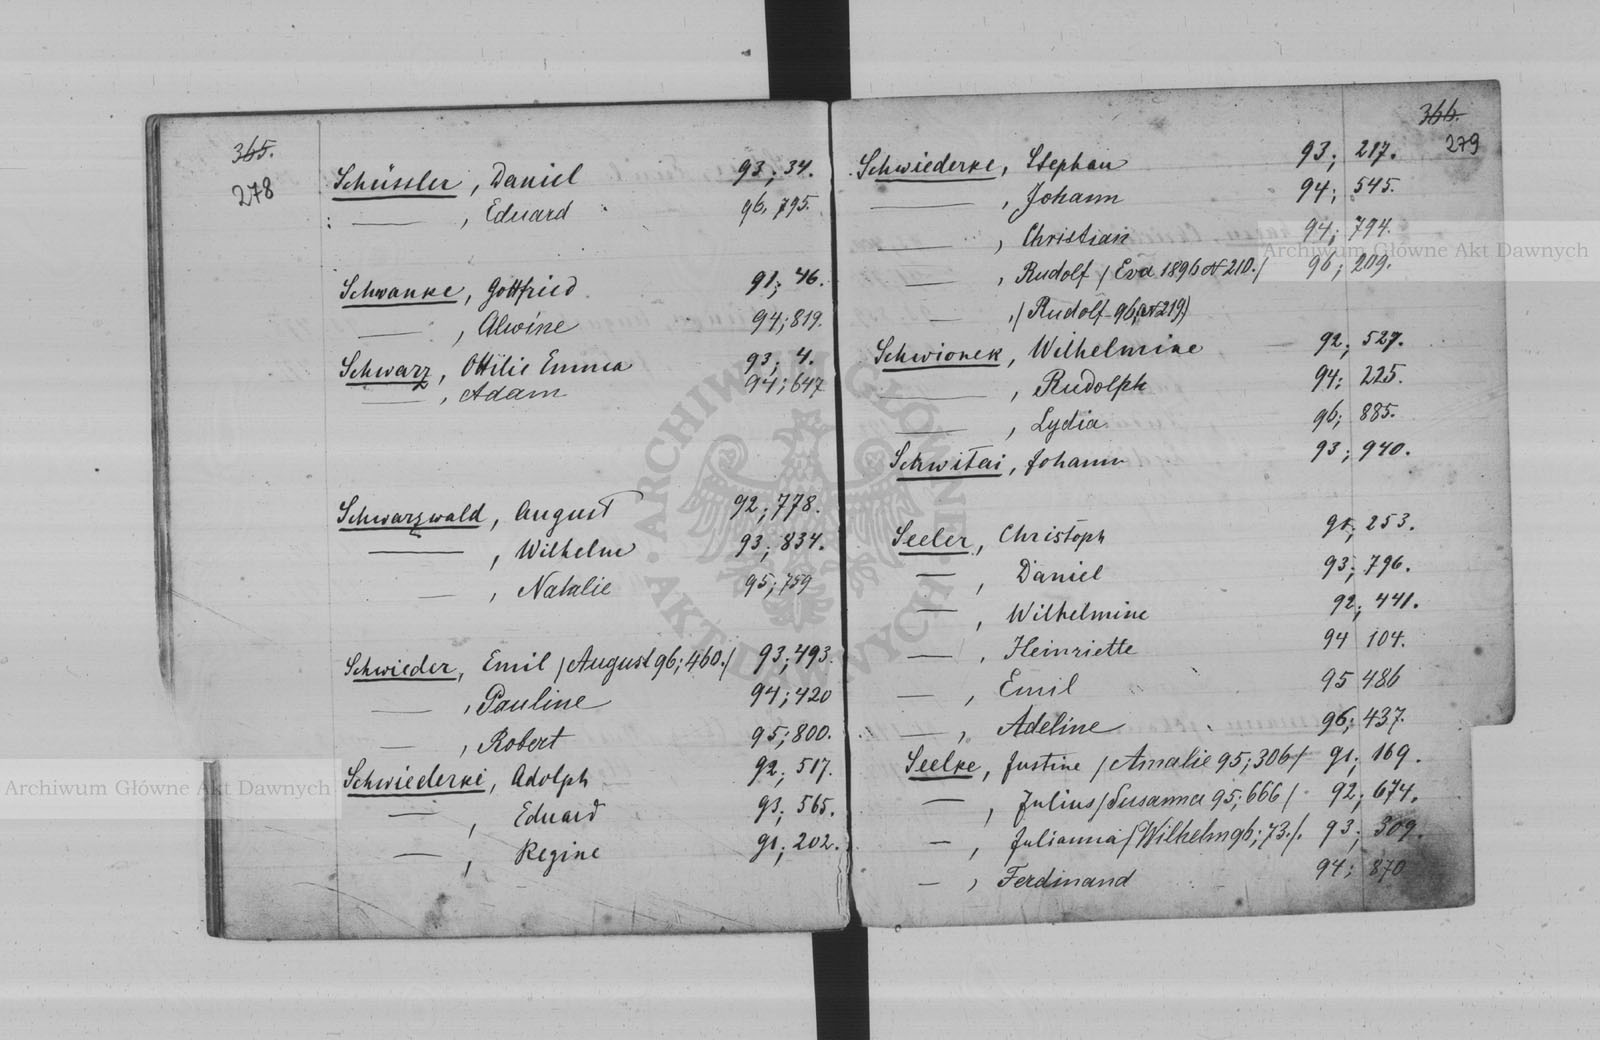 365.
278
Schüssler, Daniel 93; 34.
— , Eduard 96, 795.
Schwanke, Gottfried 91; 46.
— , Alwine 94; 819.
Schwarz, Ottilie Emma 93; 4.
— , Adam 94; 647
Schwarzwald, August 92; 778.
— , Wilhelm 93; 834.
— , Natalie 95; 759
Schwieder, Emil /August 96; 460./ 93; 493.
— , Pauline 94; 420
— , Robert 95; 800.
Schwiederke, Adolph 92; 517.
— , Eduard 93; 565.
— , Regine 91; 202.
366.
279
Schwiederke, Stephan 93; 217.
— , Johann 94; 545.
— , Christian 94; 794.
— , Rudolf /Eva 1896 № 210./ 96; 209.
— , /Rudolf 96, № 219/
Schwionek, Wilhelmine 92; 527.
— , Rudolph 94; 225.
— , Lydia 96; 885.
Schwitai, Johann 93; 940.
Seeler, Christoph 91; 253.
— , Daniel 93; 796.
— , Wilhelmine 92; 441.
— , Heinriette 94 104.
— , Emil 95 486
— , Adeline 96; 437.
Seelke, Justine /Amalie 95; 306/ 91; 169.
— , Julius /Susanna 95; 666/ 92; 674.
— , Julianna /Wilhelm 96; 73./. 93; 309.
— , Ferdinand 94; 870
Archiwum Główne Akt Dawnych
Archiwum Główne Akt Dawnych
ARCHIWUM GŁÓWNE AKT DAWNYCH